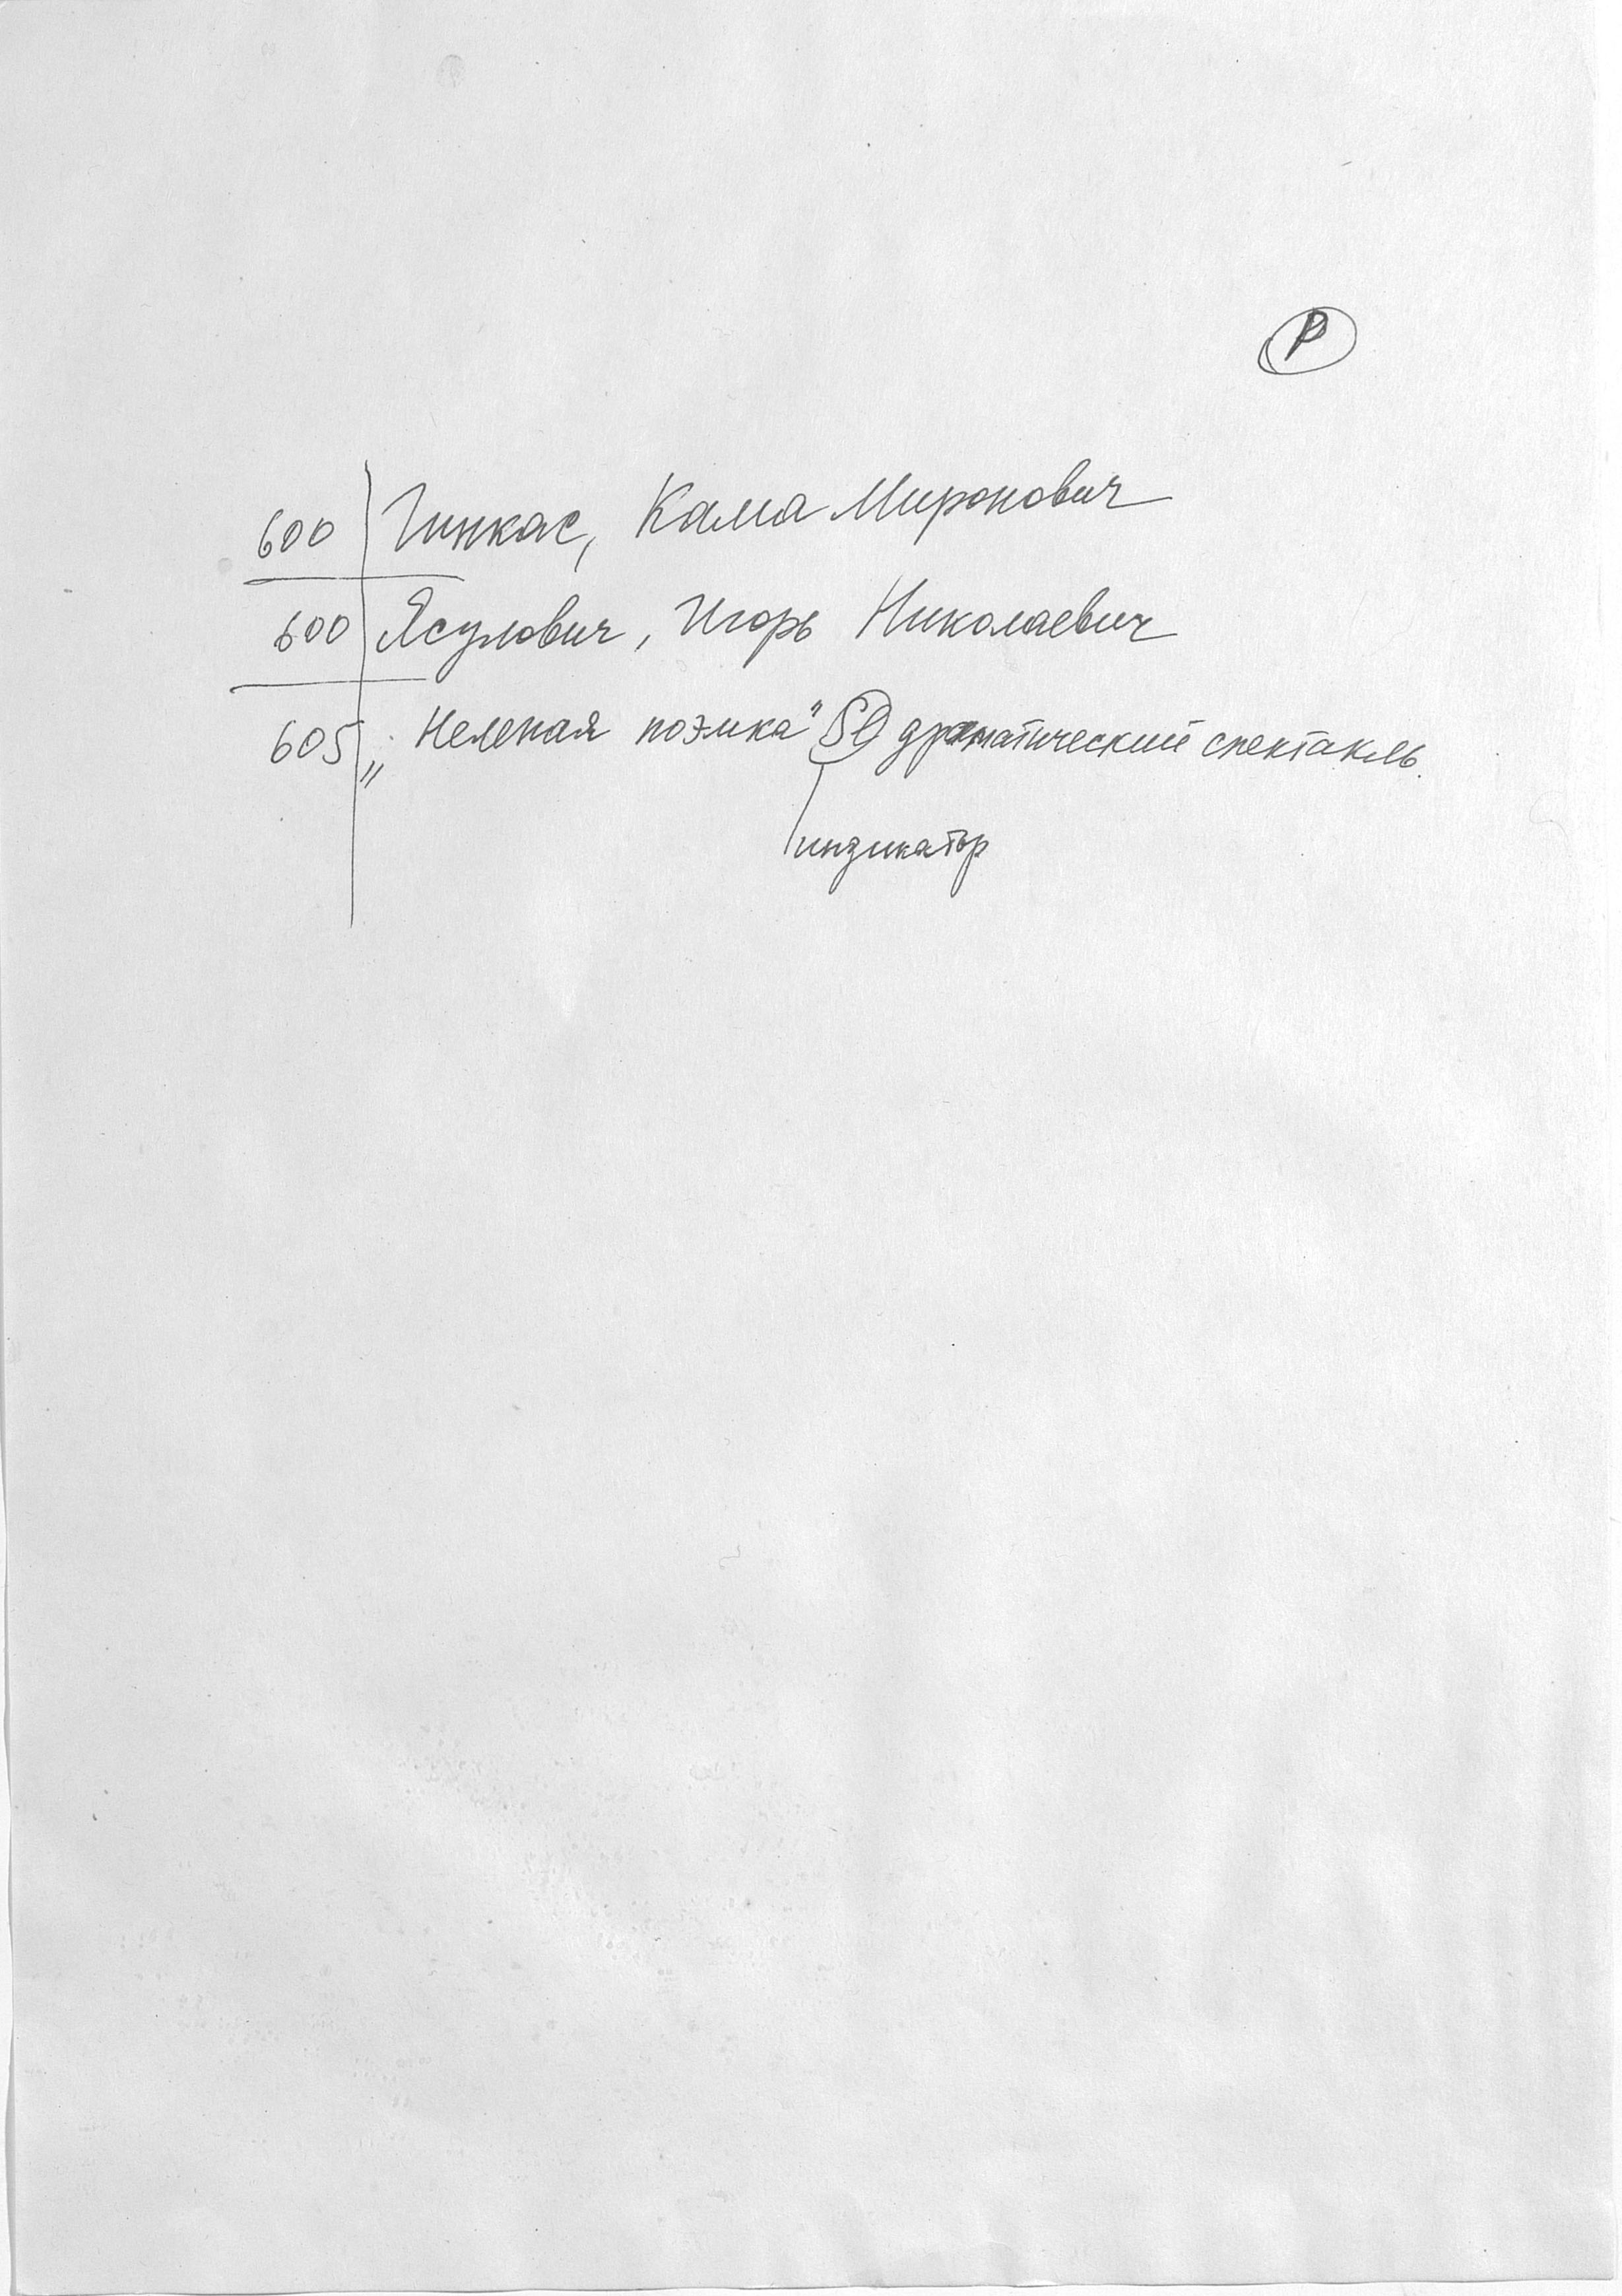 Р
600 Гинкас, Кама Миронович
600 Ясулович, Игорь Николаевич
605 „Нелепая поэмка" драматический спектакль.
индикатор